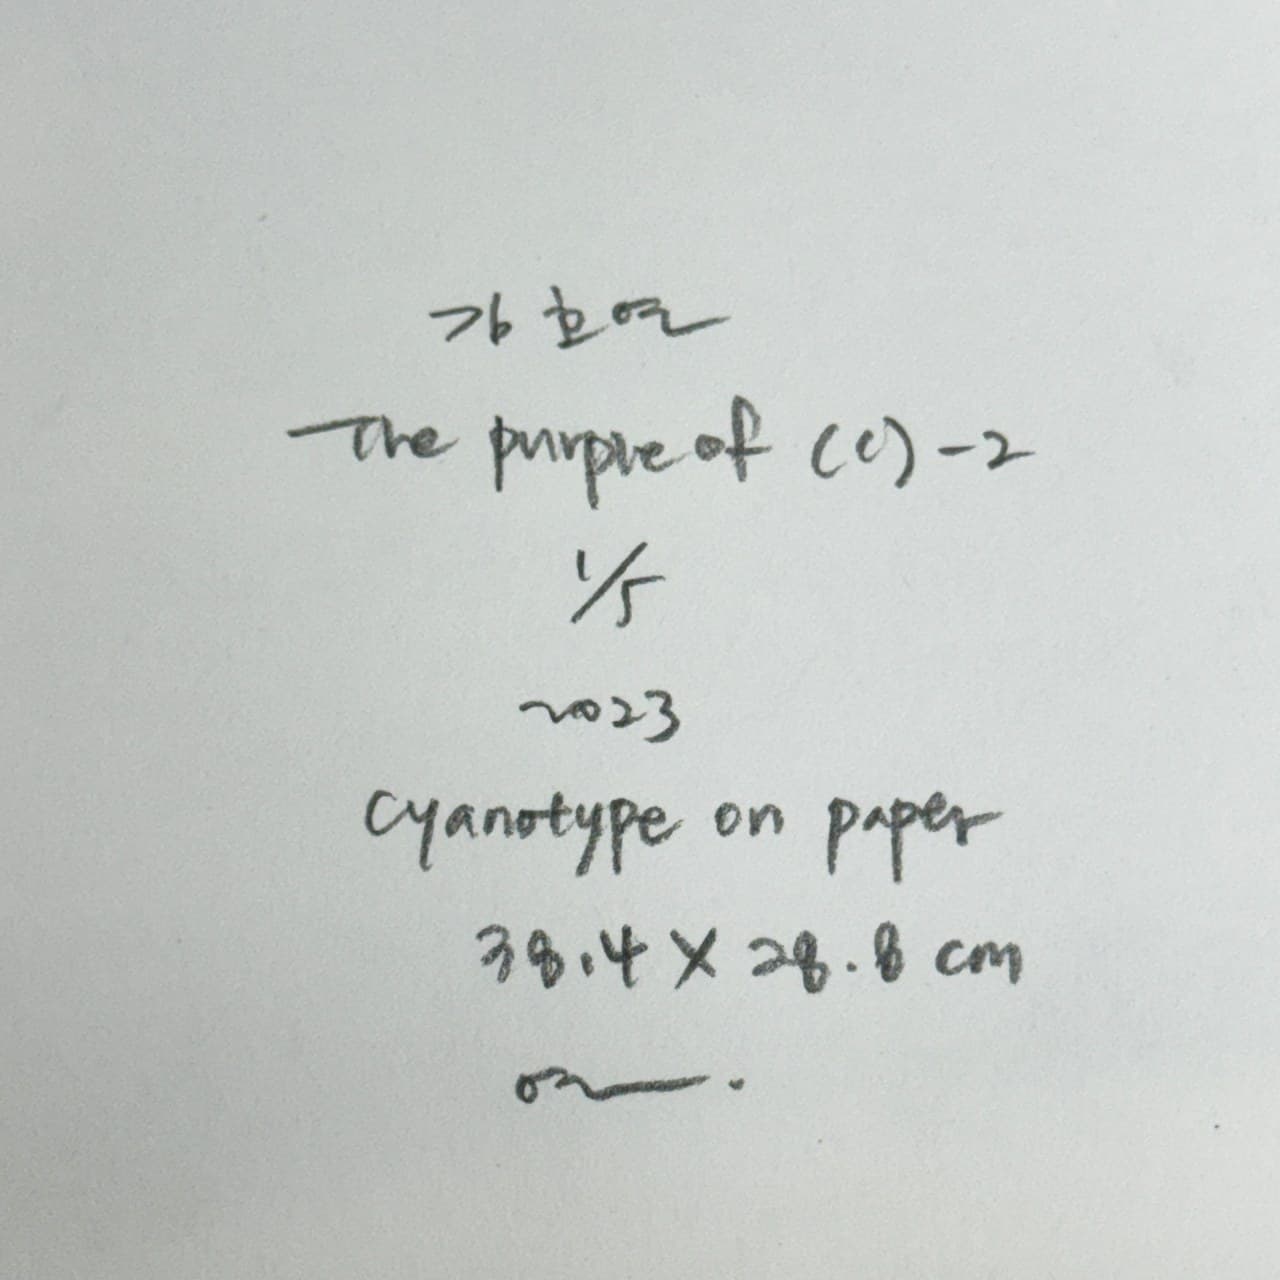 김호연
The purple of (c)-2
1/5
2023
Cyanotype on paper
38.4 X 28.8 cm